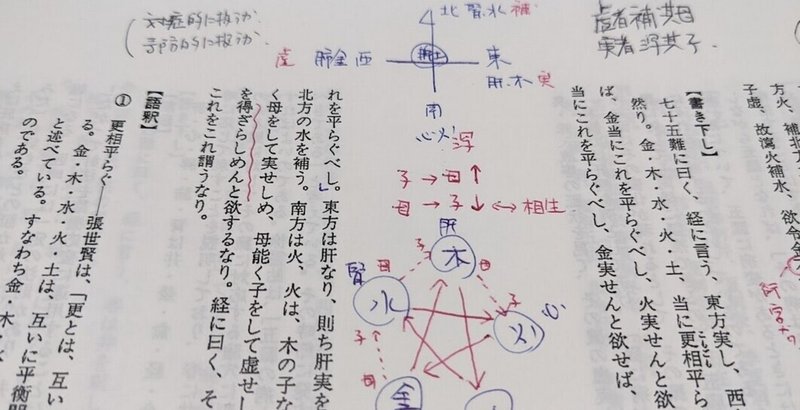 虚者補其母
実者瀉其子
方火、補北方
子虚、故瀉火補水、欲令金
【書き下し】
七十五難に曰く、経に言う、東方実し、西
然り。金・木・水・火・土、当に更相平ら
こもごも
ば、金当にこれを平らぐべし、火実せんと欲
当にこれを平らぐべし、金実せんと欲せば、
北 腎水 補
虚 肺金 西
東
肝木 実
南
心火 瀉
子→母↑
母→子↓ ⇔相生
肝
木
子
母
腎
水
母
子
心
火
子
母
金
対症的に扱うか
れを平らぐべし。」東方は肝なり、則ち肝実を
北方の水を補う。南方は火、火は、木の子な
く母をして実せしめ、母能く子をして虚せし
を得ざらしめんと欲するなり。経に曰く、そ
これをこれ謂うなり。
【語釈】
① 更相平らぐ――張世賢は、「更とは、互い
る。金・木・水・火・土は、互いに平衡関
と述べている。すなわち金・木・水
のである。